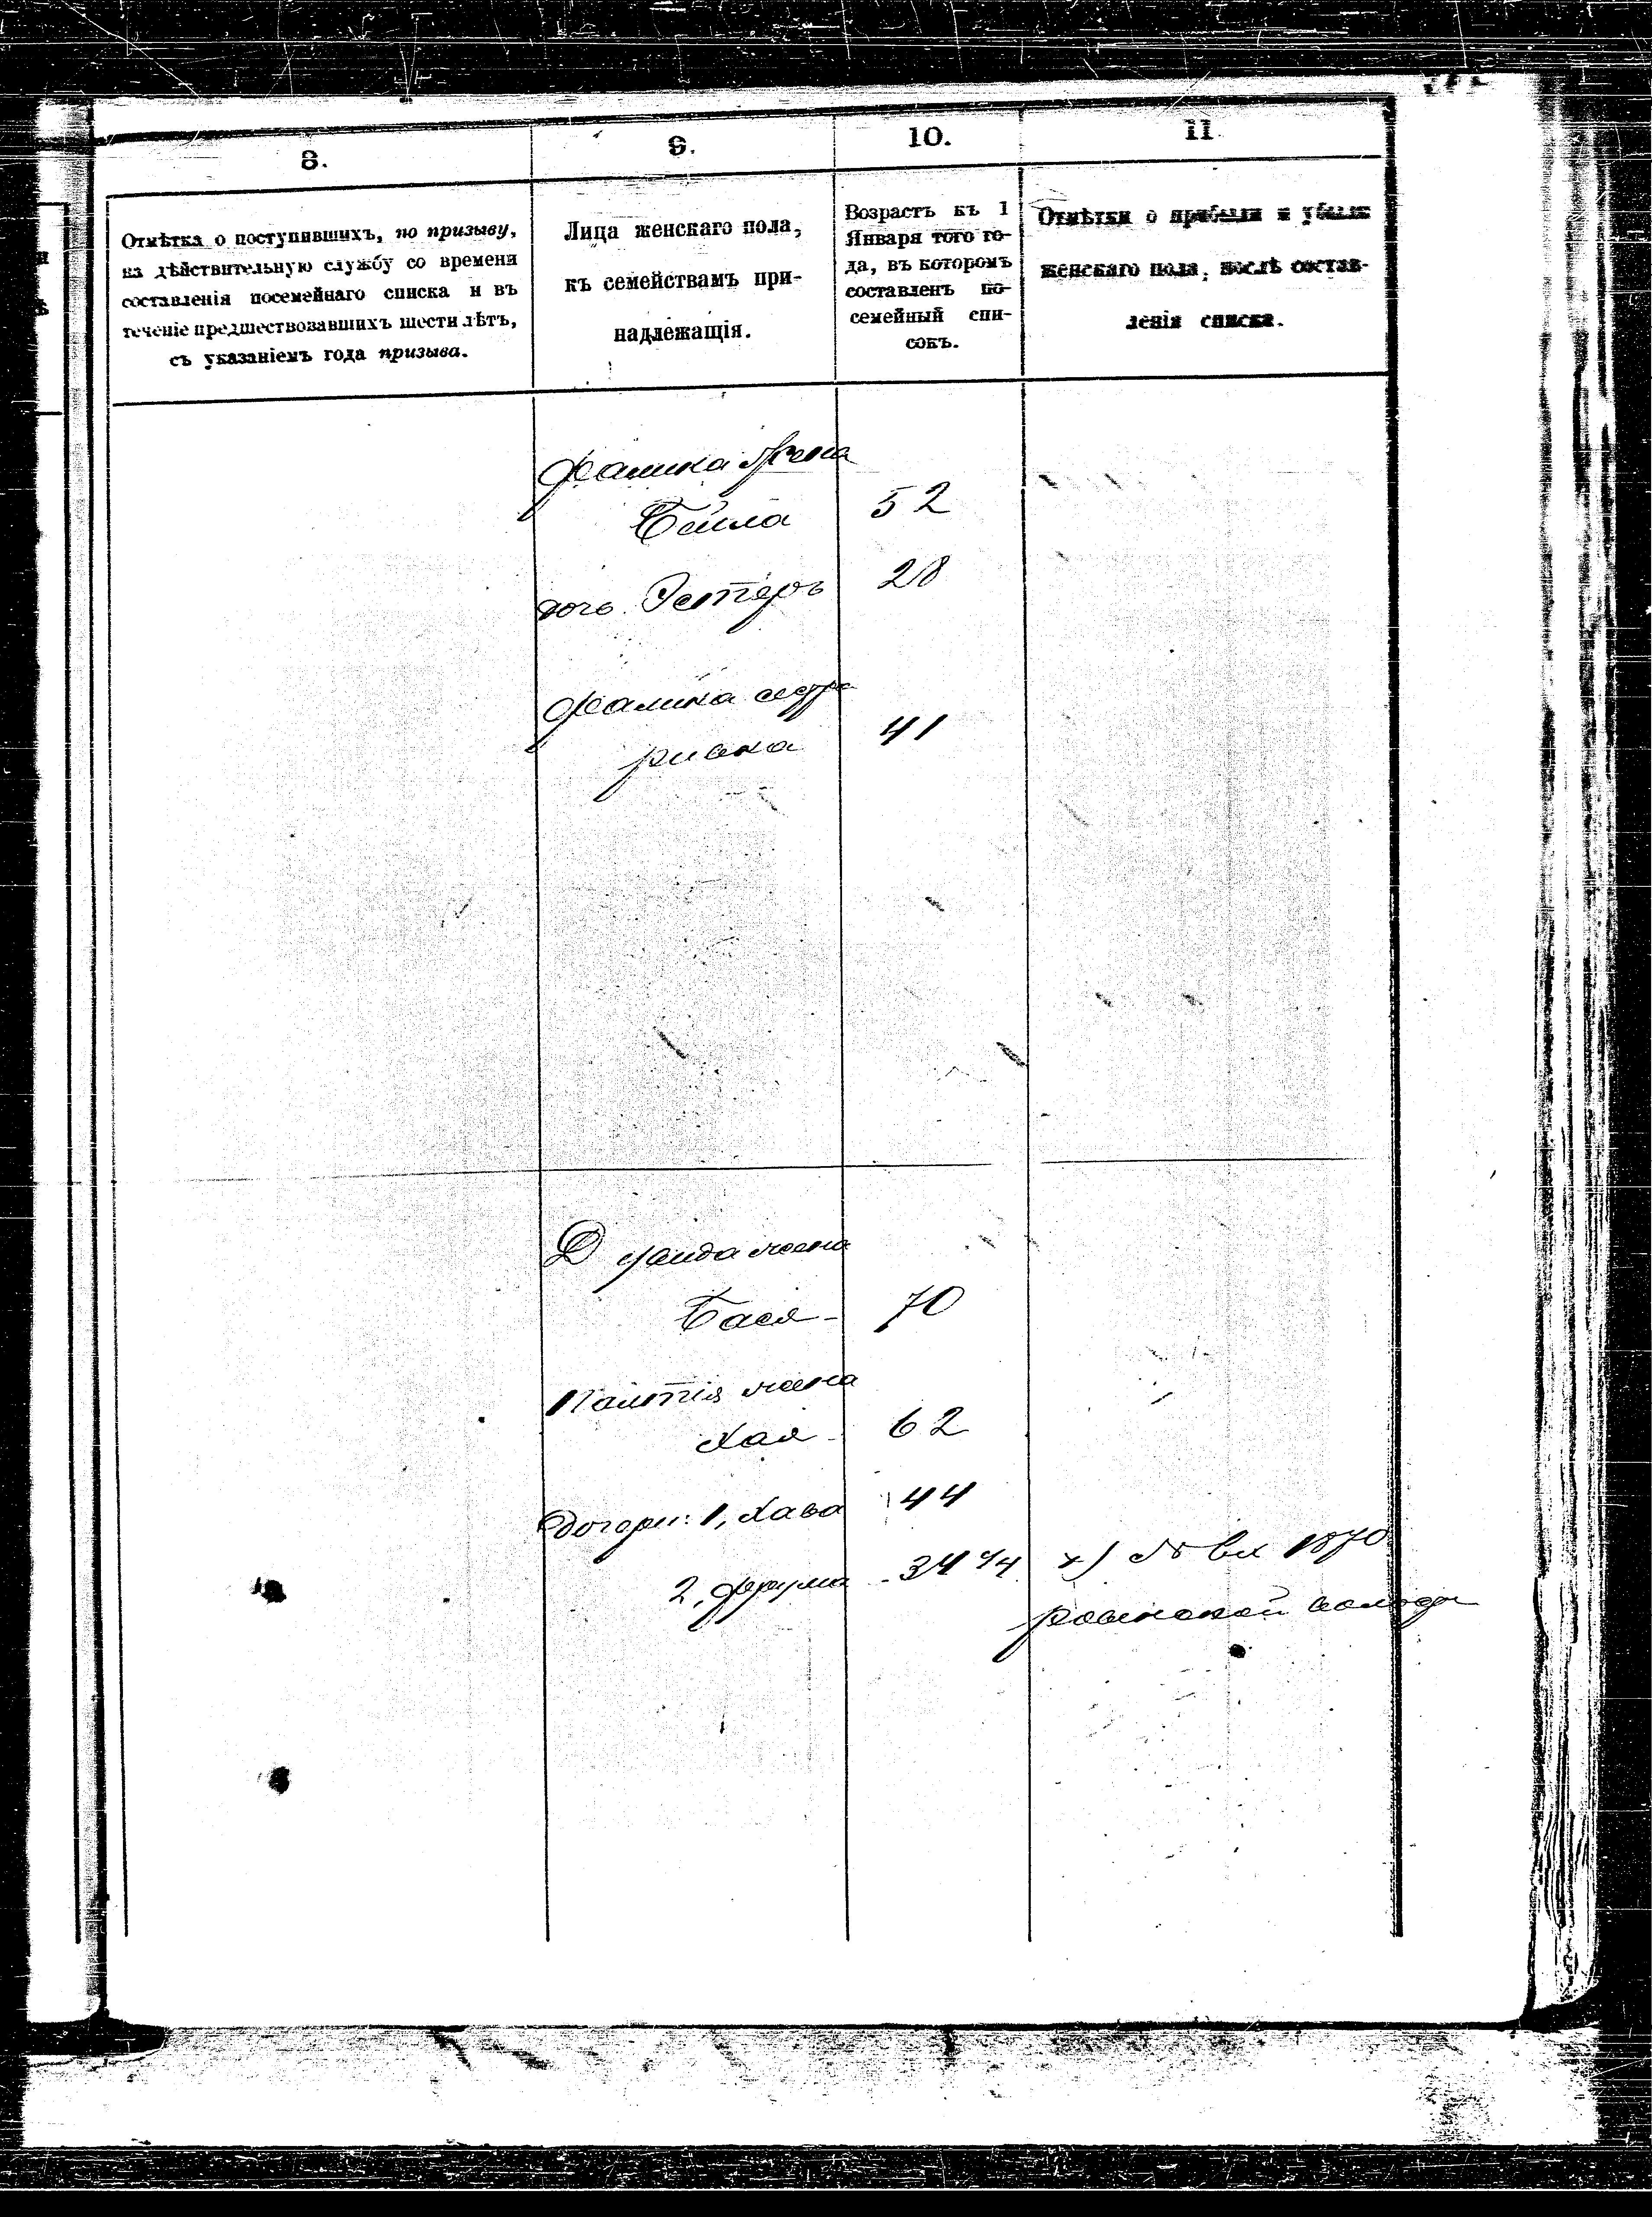 8.
9.
10.
11
Отмѣтка о поступившихъ, по призыву,
на дѣйствительную службу со времени
составленія посемейнаго списка и въ
теченіе предшествовавшихъ шести лѣтъ,
съ указаніемъ года призыва.
Лица женскаго пола,
къ семействамъ при-
надлежащія.
Возрастъ къ 1
Января того го-
да, въ которомъ
составленъ по-
семейный спи-
сокъ.
Отмѣтки о прибыли и убыли
женскаго пола, послѣ состав-
ленія списка.
жена
Бейла 52
дочь Эстеръ 28
сестра
Ривка 41
жена
Бася - 70
жена
Хая - 62
Дочери: 1, Хава 44
2, Фрума - 34
№ вх 1870